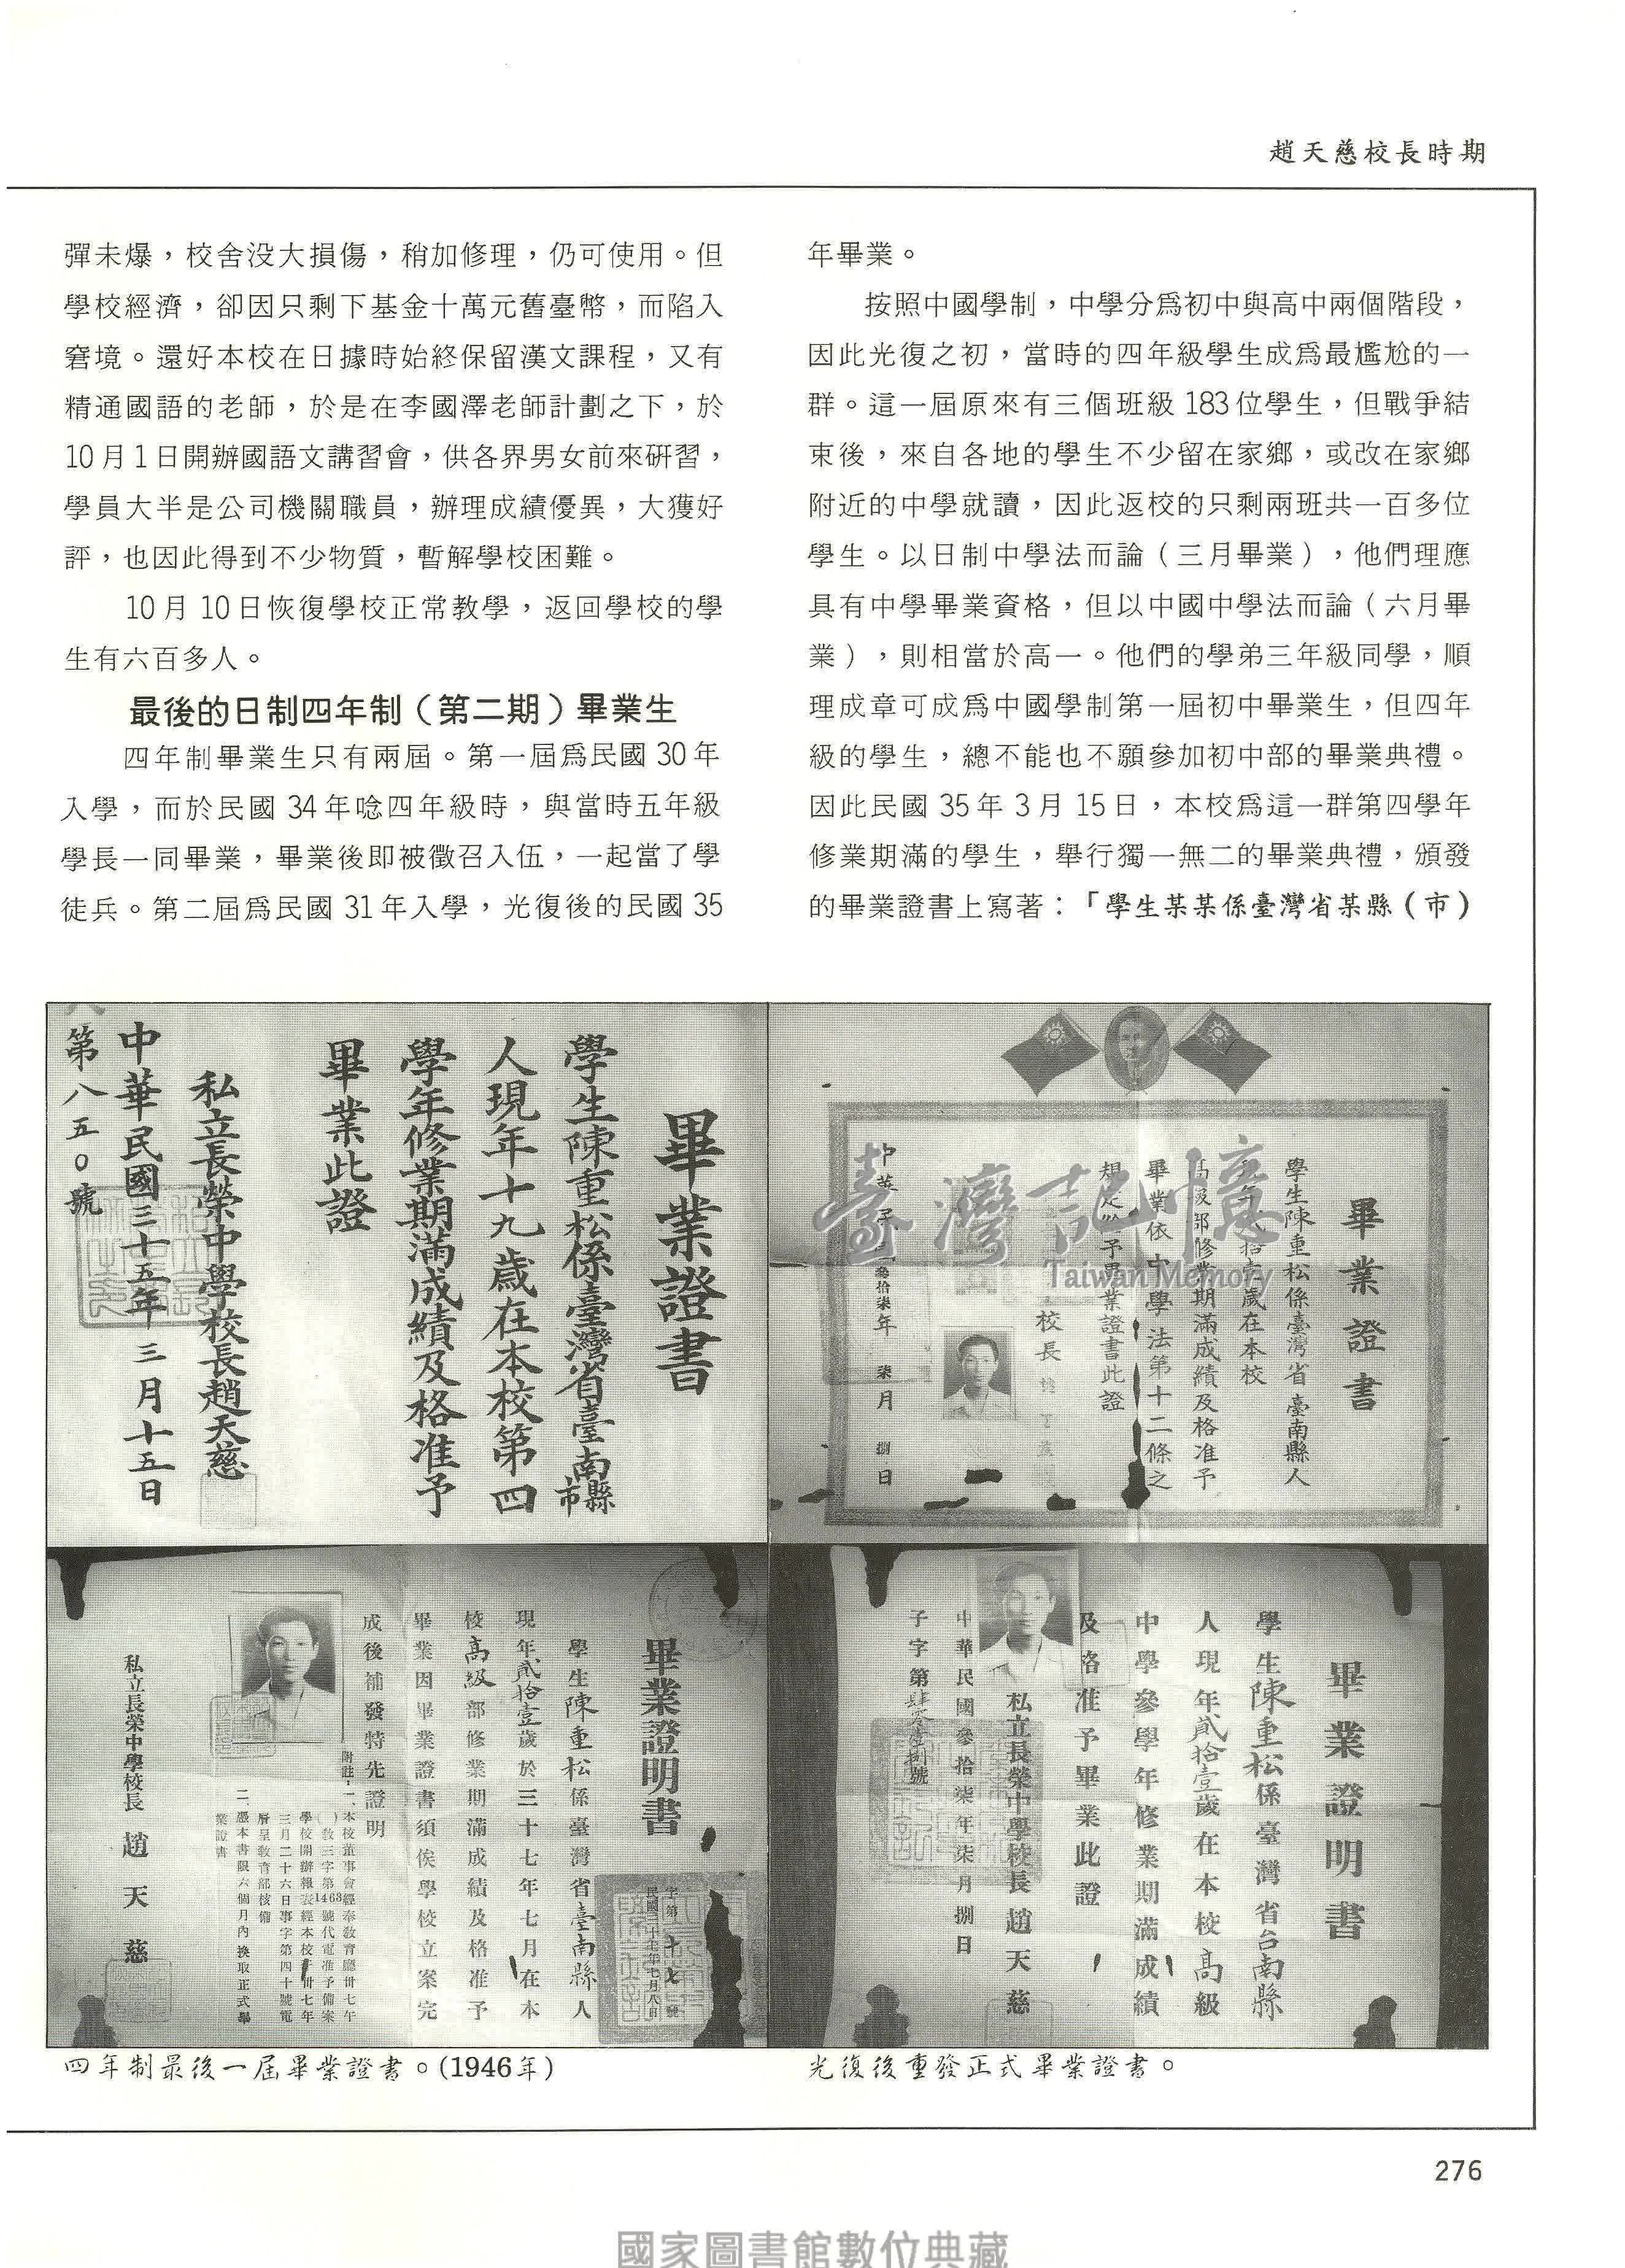 趙天慈校長時期
彈未爆，校舍没大損傷，稍加修理，仍可使用。但
學校經濟，卻因只剩下基金十萬元舊臺幣，而陷入
窘境。還好本校在日據時始終保留漢文課程，又有
精通國語的老師，於是在李國澤老師計劃之下，於
10月1日開辦國語文講習會，供各界男女前來研習，
學員大半是公司機關職員，辦理成績優異，大獲好
評，也因此得到不少物質，暫解學校困難。
10月10日恢復學校正常教學，返回學校的學
生有六百多人。
最後的日制四年制（第二期）畢業生
四年制畢業生只有兩屆。第一屆爲民國30年
入學，而於民國34年唸四年級時，與當時五年級
學長一同畢業，畢業後即被徵召入伍，一起當了學
徒兵。第二屆爲民國31年入學，光復後的民國35
年畢業。
按照中國學制，中學分爲初中與高中兩個階段，
因此光復之初，當時的四年級學生成爲最尷尬的一
群。這一屆原來有三個班級183位學生，但戰爭結
束後，來自各地的學生不少留在家鄉，或改在家鄉
附近的中學就讀，因此返校的只剩兩班共一百多位
學生。以日制中學法而論（三月畢業），他們理應
具有中學畢業資格，但以中國中學法而論（六月畢
業），則相當於高一。他們的學弟三年級同學，順
理成章可成爲中國學制第一屆初中畢業生，但四年
級的學生，總不能也不願參加初中部的畢業典禮。
因此民國35年3月15日，本校爲這一群第四學年
修業期滿的學生，舉行獨一無二的畢業典禮，頒發
的畢業證書上寫著：「學生某某係臺灣省某縣（市）
畢業證書
學生陳重松係臺灣省臺南縣市
人現年十九歲在本校第四
學年修業期滿成績及格准予
畢業此證
私立長榮中學校長趙天慈
中華民國三十五年三月十五日
第八五0號
畢業證書
學生陳重松係臺灣省臺南縣人
歲在本校
修業期滿成績及格准予
畢業依中學法第十二條之
予畢業證書此證
校長
年柒月捌日
臺灣記憶
Taiwan Memory
畢業證明書
學生陳重松係臺灣省臺南縣人
現年貳拾壹歲於三十七年七月在本
校高級部修業期滿成績及格准予
畢業因畢業證書須俟學校立案完
成後補發特先證明
附註·一、本校董事會經奉敎育廳卅七午
敎三字第1463號代電准予備案
學校開辦報表經本校于卅七年
三月二十六日事字第四十號電
層呈敎育部核備
二、憑本書限六個月內換取正式畢
業證書
私立長榮中學校長 趙天慈
字第十七號
民國三十七年七月八日
畢業證明書
學生陳重松係臺灣省台南縣
人現年貳拾壹歲在本校高級
中學參學年修業期滿成績
及格准予畢業此證
私立長榮中學校長趙天慈
中華民國參拾柒年柒月捌日
子字第肆零壹捌號
四年制最後一屆畢業證書。(1946年)
光復後重發正式畢業證書。
276
國家圖書館數位典藏